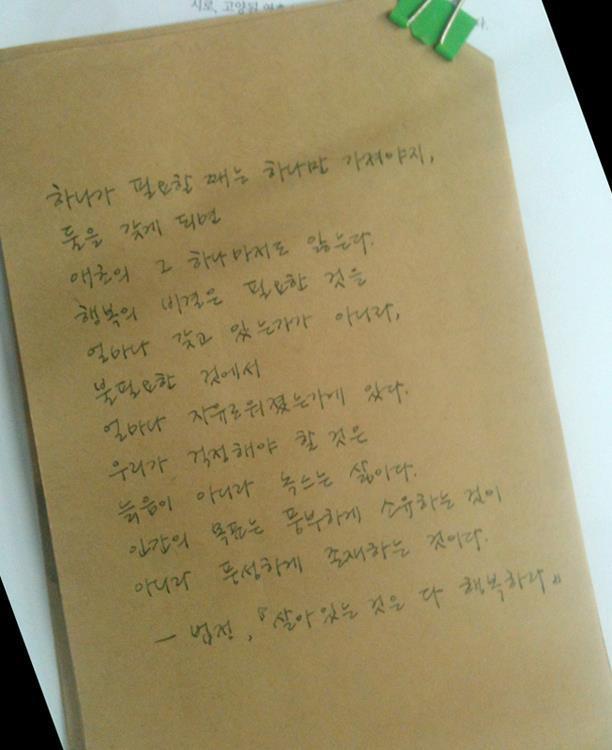 시로, 고양된
하나가 필요할 때는 하나만 가져야지,
둘을 갖게 되면
애초의 그 하나마저도 잃는다.
행복의 비결은 필요한 것을
얼마나 갖고 있는가가 아니라,
불필요한 것에서
얼마나 자유로워졌는가에 있다.
우리가 걱정해야 할 것은
늙음이 아니라 녹스는 삶이다.
인간의 목표는 풍부하게 소유하는 것이
아니라 풍성하게 존재하는 것이다.
- 법정, 『살아있는 것은 다 행복하라』